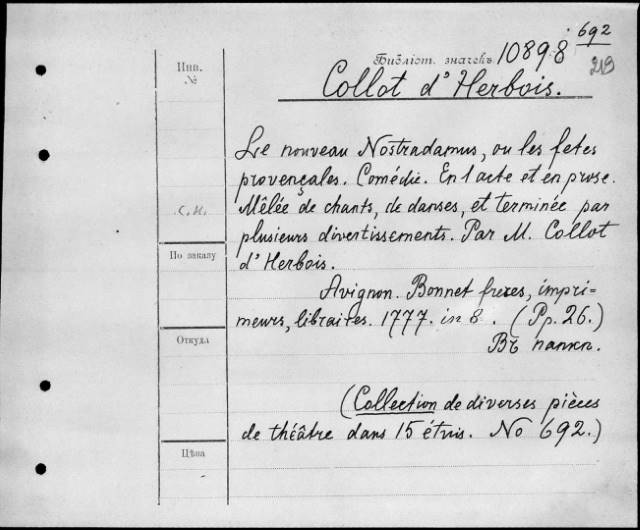 692
Библіот. значекъ 10898
213
Инв.
№
Collot d'Herbois.
Le nouveau Nostradamus, ou les fetes
provençales. Comédie. En 1 acte et en prose.
Mêlée de chants, de danses, et terminée par
с.и.
plusieurs divertissements. Par M. Collot
По заказу
d'Herbois.
Avignon. Bonnet freres, impri-
meurs, libraires. 1777. in 8. (Pp. 26.)
Откуда
Въ папкѣ.
(Collection de diverses pièces
de théâtre dans 15 étuis. No 692.)
Цѣна